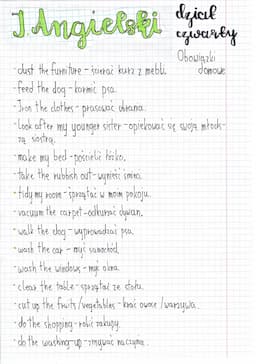 J. Angielski
dział
czwarty
Obowiązki
domowe
- dust the furniture - ścierać kurz z mebli.
- feed the dog - karmić psa.
- Iron the clothes - prasować ubrania.
- look after my younger sister - opiekować się swoją młod-
szą siostrą.
- make my bed - pościelić łóżko.
- take the rubbish out - wynieść śmieci.
- tidy my room - sprzątać w moim pokoju.
- vacuum the carpet - odkurzać dywan.
- walk the dog - wyprowadzać psa.
- wash the car - myć samochód.
- wash the windows - myć okna.
- clear the table - sprzątać ze stołu.
- cut up the fruits / vegetables - kroić owoce / warzywa.
- do the shopping - robić zakupy.
- do the washing-up - zmywać naczynia.